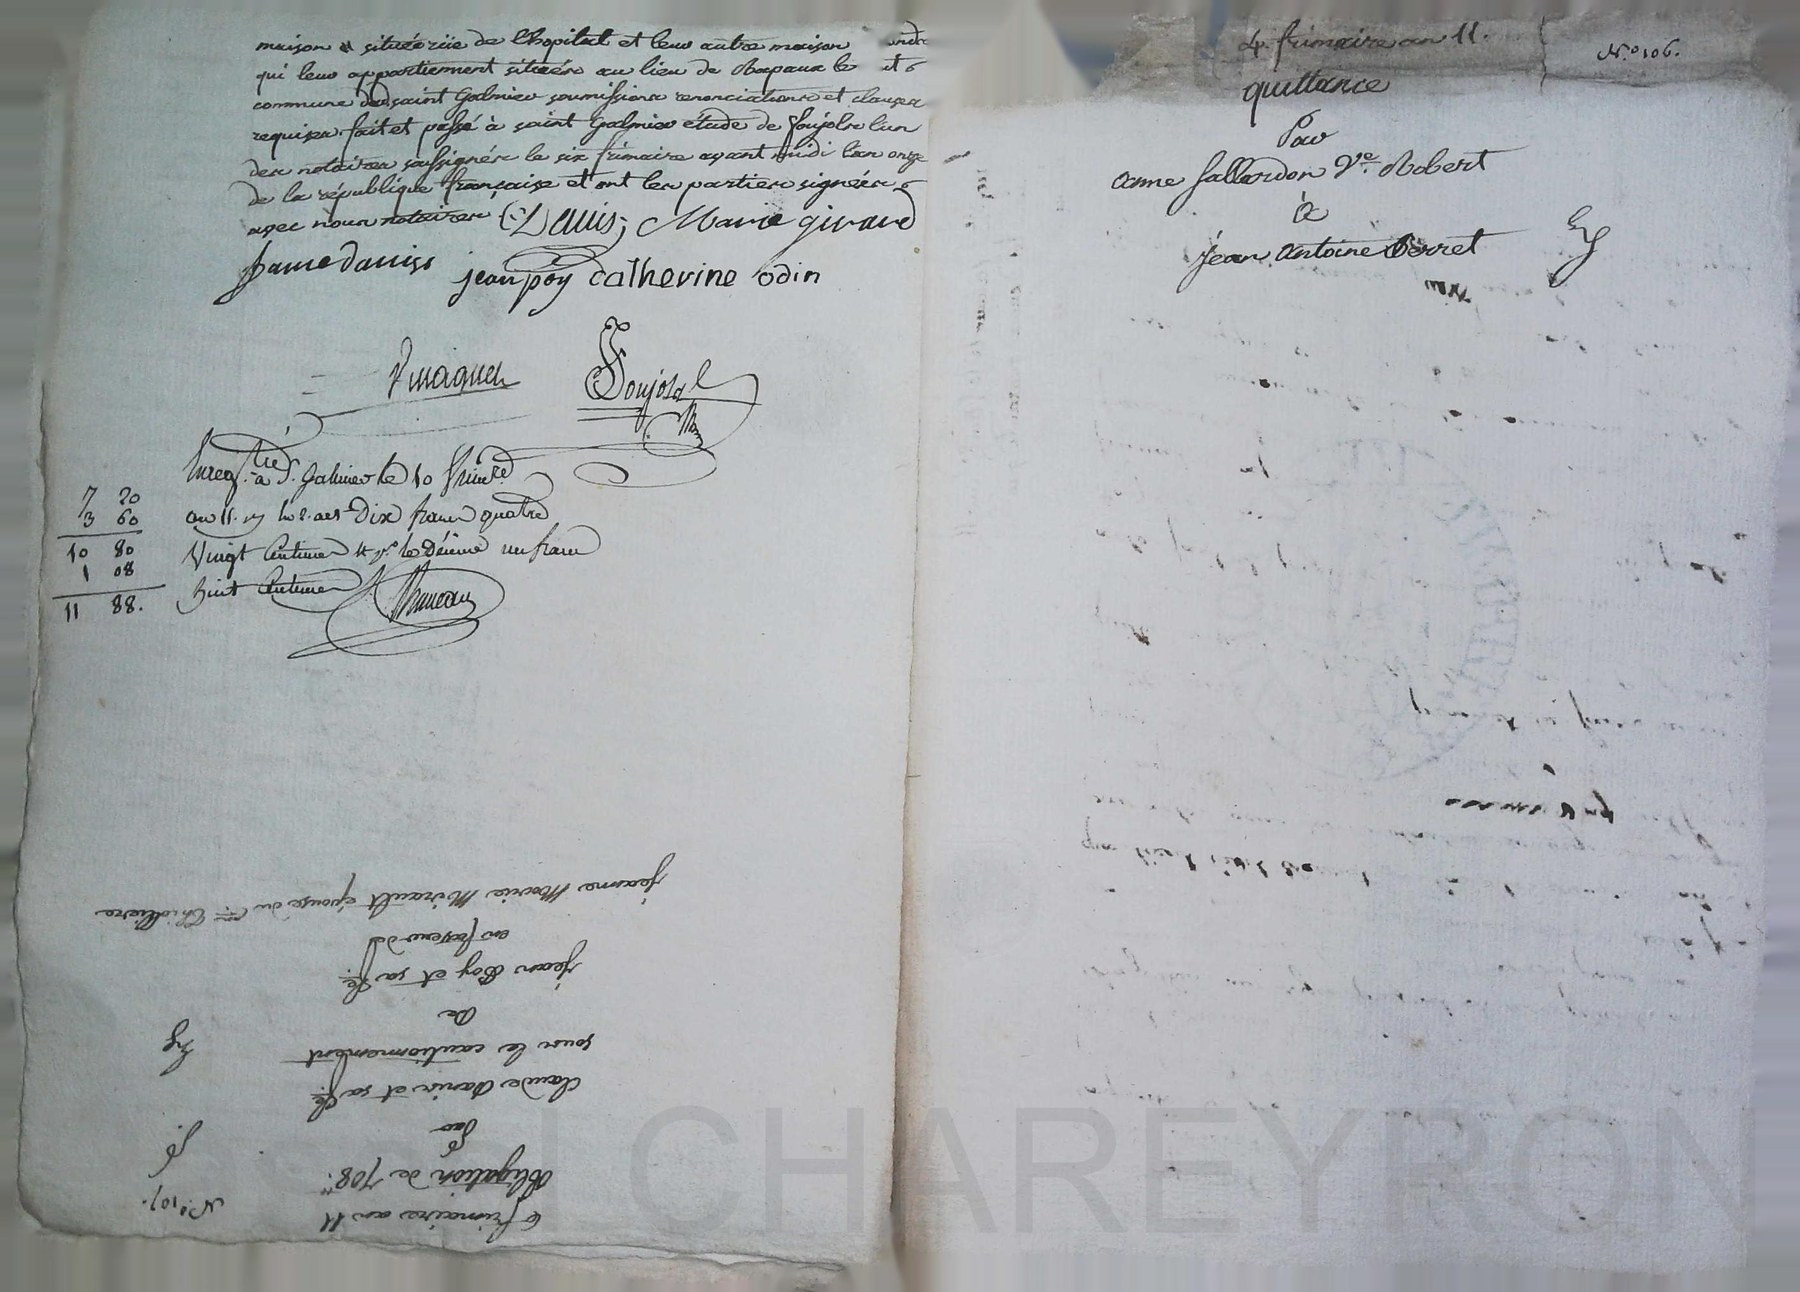 maison située rüe de lhopital et leur autre maison
qui leur appartiennent situées au lieu de et
commune de saint Galmier soumissions renonciations et clauses
requises fait et passé à saint Galmier étude de Soujols l'un
des notaires soussignés le six frimaire avant midi l'an onze
de la république française et ont les parties signées
avec nous notaires Danis; Marie girard
jean poy catherine odin
Soujols
Enreg.tré à St. Galmier le 10 frimre
7 20
3 60
an 11. dix francs quatre
10 80
1 08
Vingt Centimes le Décime un franc
huit Centimes
11 88.
6 frimaire an 11
N.º 107.
Obligation de 708.tt
Par
Claude Danis et sa fe.
sous le cautionnement
De
jean Poy et sa fe.
en faveur de
jeanne Marie Mirault épouse du Cen. Thiolliere
4. frimaire an 11.
Nº 106.
quittance
Par
anne Gallardon Ve. Robert
à
jean Antoine Perret
CHAREYRON